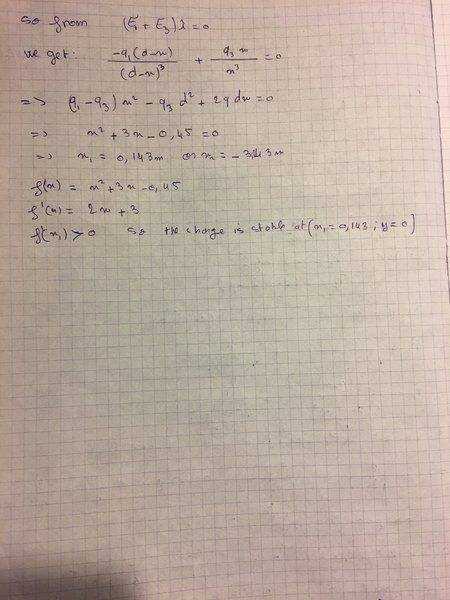 so from (E⃗₁ + E⃗₃) î = 0
we get: -q₁(d-x)/(d-x)³ + q₃x/x³ = 0
=> (q₁-q₃)x² - q₃d² + 2q dx = 0
=> x² + 3x - 0,45 = 0
=> x₁ = 0,143m or x₂ = -3,143m
f(x) = x² + 3x - 0,45
f'(x) = 2x + 3
f'(x₁) > 0 so the charge is stable at (x₁ = 0,143 ; y = 0)